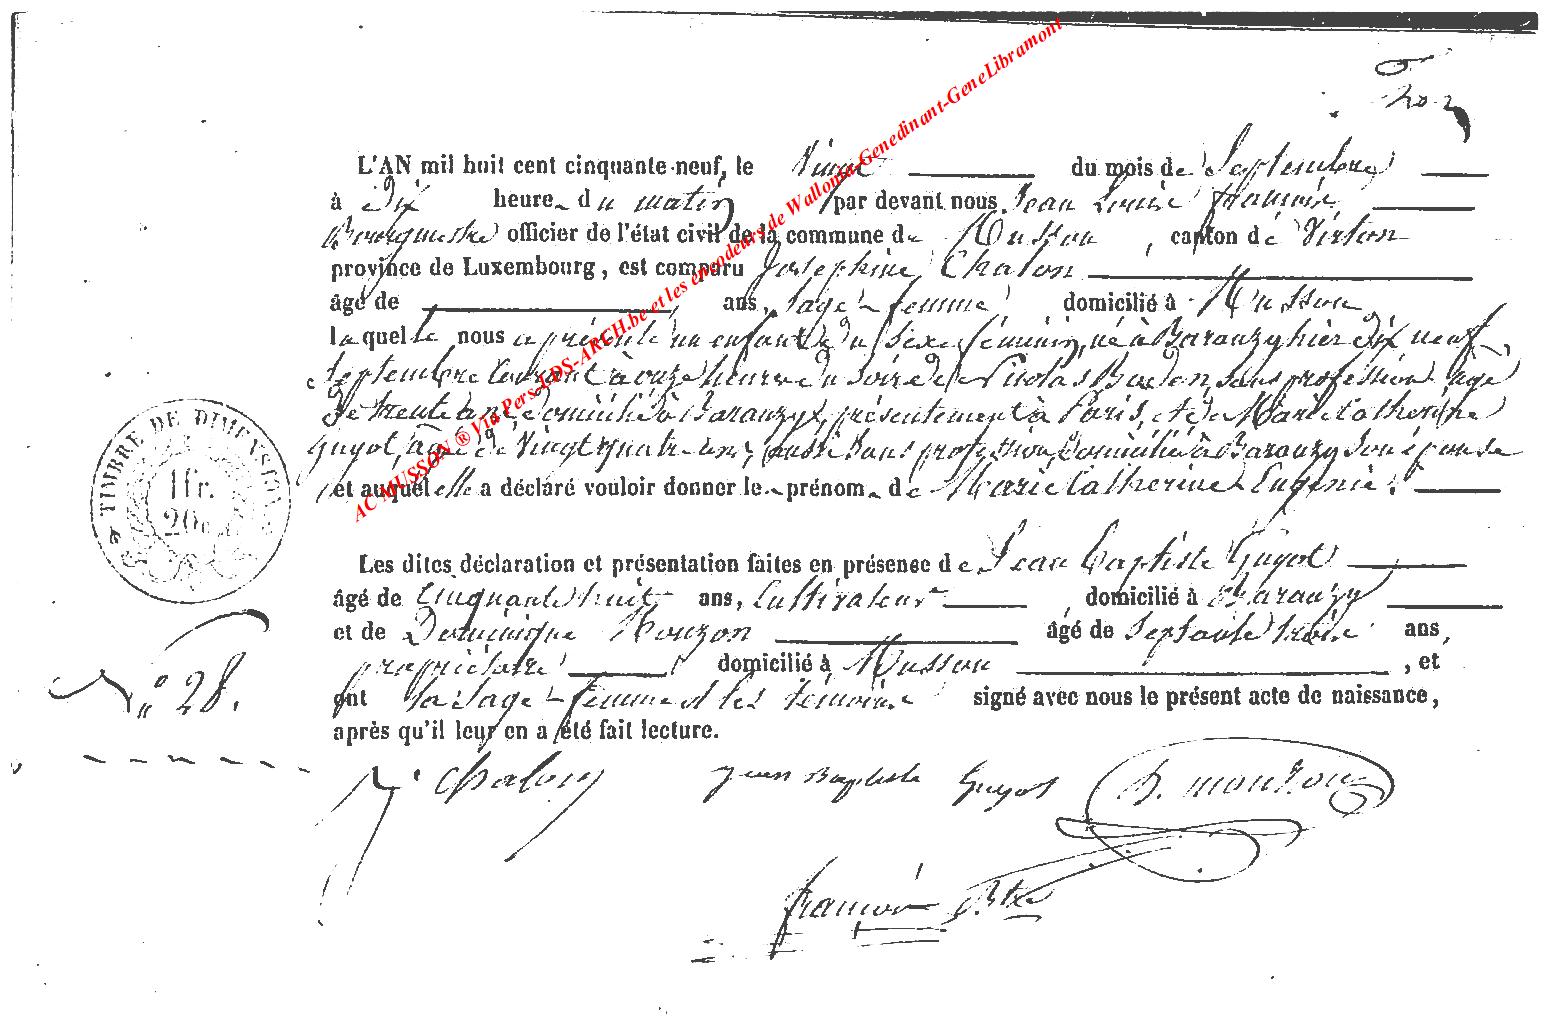 L'AN mil huit cent cinquante-neuf, le Vingt du mois de Septembre
à Dix heure du matin par devant nous Jean Louis François
Bourgmestre officier de l'état civil de la commune de Musson, canton de Virton
province de Luxembourg, est comparu Josephine Chalon
âgé de ans, sage-femme domicilié à Musson
laquelle nous a présenté un enfant du sexe féminin, né à Baranzy hier dix neuf
septembre courant à onze heures du soir de Nicolas Budon, sans profession âgé
de trente ans domicilié à Baranzy, présentement à Paris, et de Marie Catherine
Guyot, âgée de Vingt quatre ans, aussi sans profession, domiciliée à Baranzy son épouse
et auquel elle a déclaré vouloir donner le prénom de Marie Catherine Eugenie.
Les dites déclaration et présentation faites en présence de Jean Baptiste Guyot
âgé de Cinquante huit ans, Cultivateur domicilié à Baranzy
et de Dominique Mouzon âgé de Septante trois ans,
propriétaire domicilié à Musson, et
ont la sage-femme et les témoins signé avec nous le présent acte de naissance,
après qu'il leur en a été fait lecture.
TIMBRE DE DIMENSION
1 fr.
20 c
N° 28.
J. Chalon Jean Baptiste Guyot D. mouzon
françois Btre
AC MUSSON ® Via Pers-LDS-ARCH.be et les encodeurs de Wallonia-Genedinant-GeneLibramont